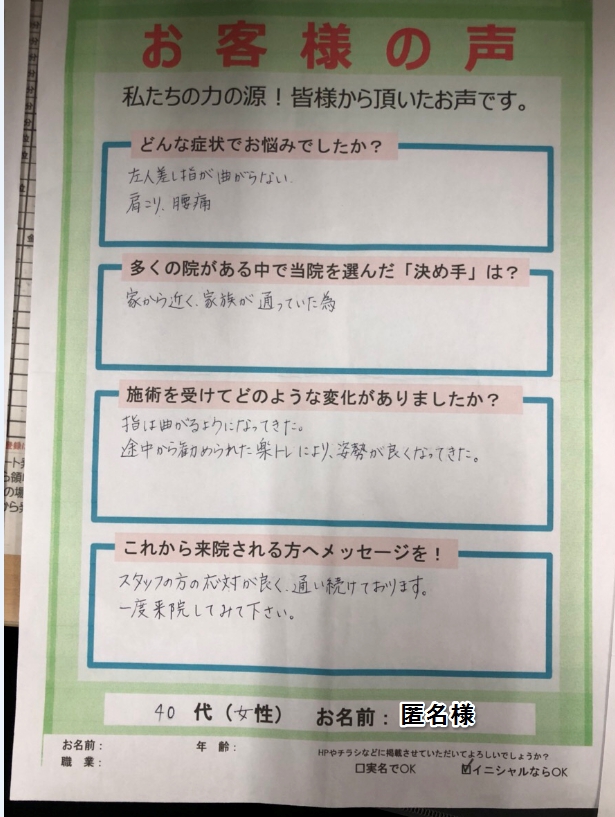 お客様の声
私たちの力の源！皆様から頂いたお声です。
どんな症状でお悩みでしたか？
左人差し指が曲がらない.
肩こり、腰痛
多くの院がある中で当院を選んだ「決め手」は？
家から近く、家族が通っていた為
施術を受けてどのような変化がありましたか？
指は曲がるようになってきた。
途中から勧められた楽トレにより、姿勢が良くなってきた。
これから来院される方へメッセージを！
スタッフの方の応対が良く、通い続けております。
一度来院してみて下さい。
40 代（女性） お名前：匿名様
お名前： 年 齢：
職 業：
HPやチラシなどに掲載させていただいてよろしいでしょうか？
□実名でOK ☑イニシャルならOK